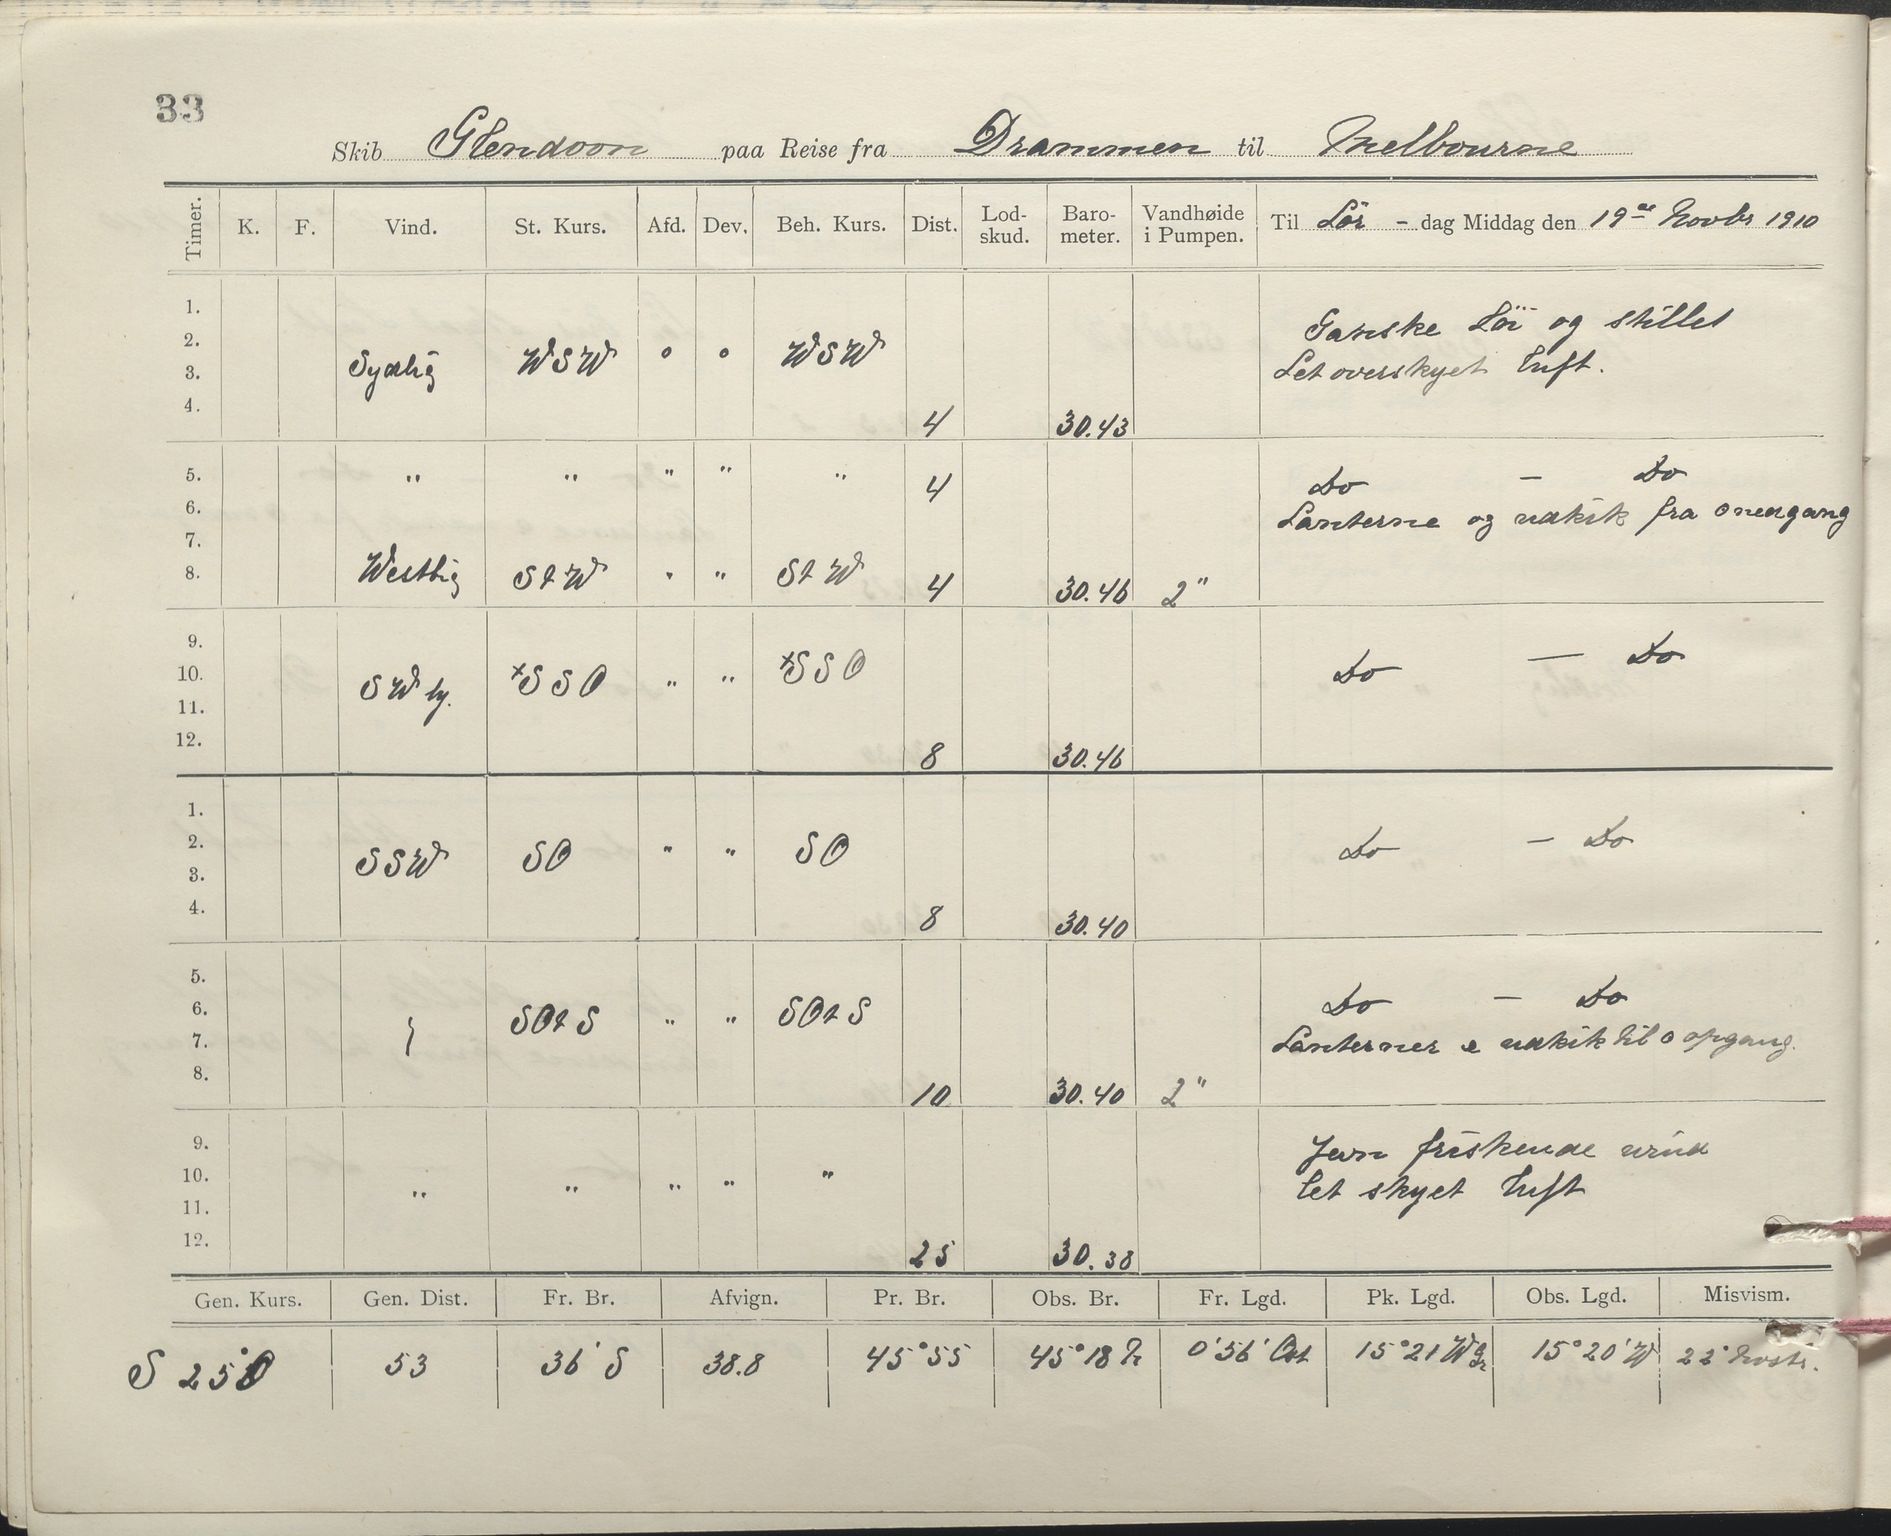 33
Skib Glendoon paa Reise fra Drammen til Melbourne
Timer. K. F. Vind. St. Kurs. Afd. Dev. Beh. Kurs. Dist. Lod-skud. Baro-meter. Vandhøide i Pumpen. Til Lör - dag Middag den 19de Novbr 1910
1.
2. Ganske Löi og stillet
3. Sydlig WSW o o WSW Let overskyet luft.
4. 4 30.43
5. " " " " " 4 Do — Do
6. Lanterne og udkik fra o nedgang
7.
8. Westlig StW " " StW 4 30.46 2"
9.
10. SWly. xSSO " " xSSO Do — Do
11.
12. 8 30.46
1.
2. SSW SO " " SO Do — Do
3.
4. 8 30.40
5.
6. SOtS " " SOtS Do — Do
7. Lanterner & udkik til o opgang.
8. 10 30.40 2"
9. Jevn friskende vind
10. " " " " " let skyet luft
11.
12. 25 30.38
Gen. Kurs. Gen. Dist. Fr. Br. Afvign. Pr. Br. Obs. Br. Fr. Lgd. Pk. Lgd. Obs. Lgd. Misvism.
S 25°O 53 36' S 38.8 45°55 45°18 N 0°56' Ost 15°21 W 15°20' W 22°